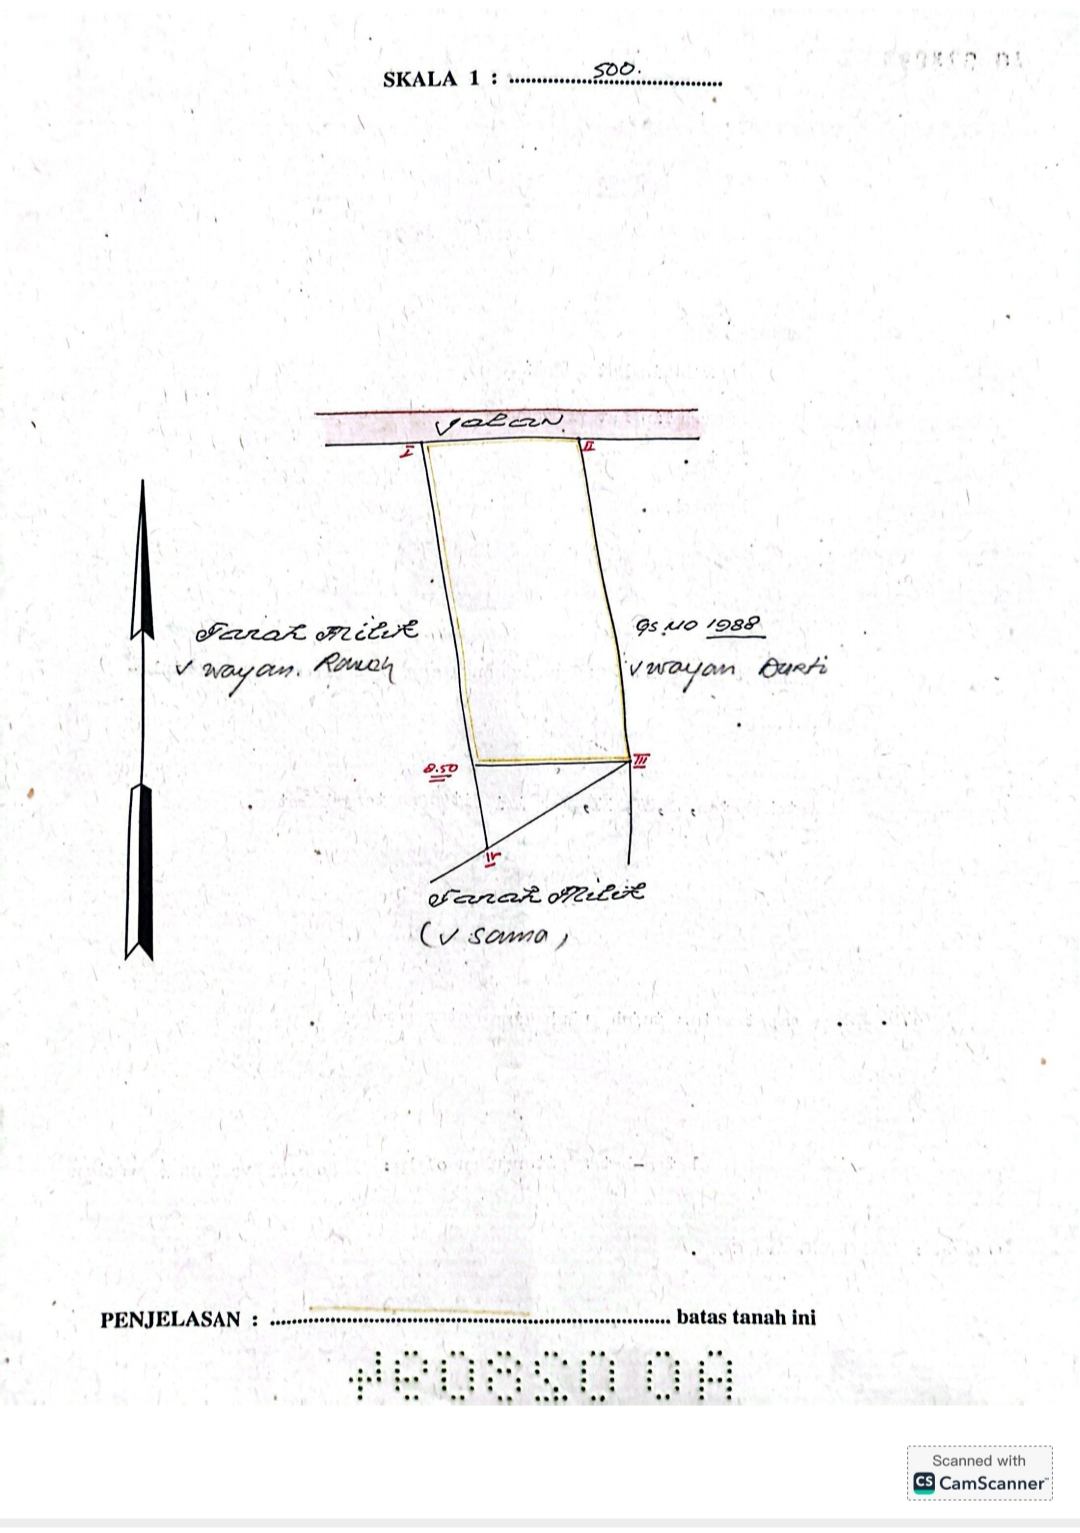 SKALA 1 : 500.
Jalan.
I
II
Tanah Milik
gs. no 1988
v wayan. Rawan
v wayan Durti
8.50
III
IV
Tanah Milik
(v sama,
PENJELASAN : batas tanah ini
Scanned with
CS CamScanner